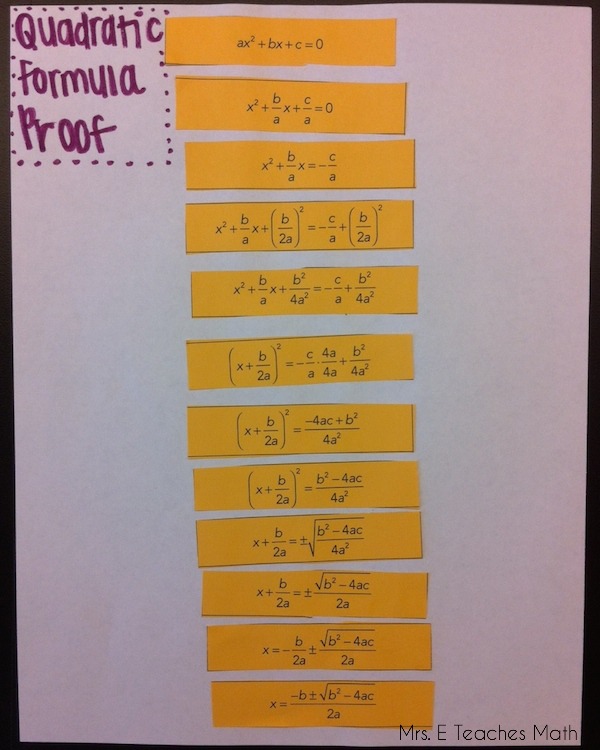 Quadratic
Formula
Proof
ax² + bx + c = 0
x² + b/a x + c/a = 0
x² + b/a x = -c/a
x² + b/a x + (b/2a)² = -c/a + (b/2a)²
x² + b/a x + b²/4a² = -c/a + b²/4a²
(x + b/2a)² = -c/a · 4a/4a + b²/4a²
(x + b/2a)² = (-4ac + b²)/4a²
(x + b/2a)² = (b² - 4ac)/4a²
x + b/2a = ±√((b² - 4ac)/4a²)
x + b/2a = ± √(b² - 4ac)/2a
x = -b/2a ± √(b² - 4ac)/2a
x = (-b ± √(b² - 4ac))/2a
Mrs. E Teaches Math